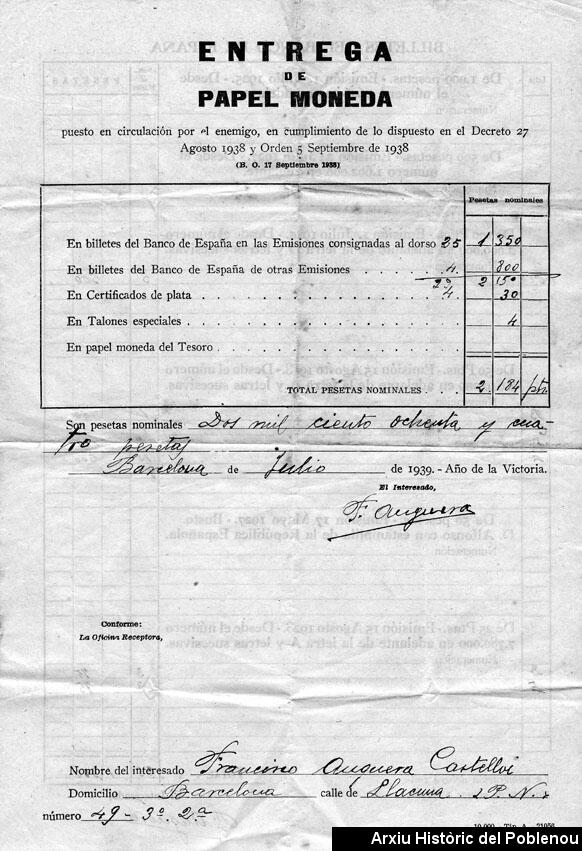 ENTREGA
DE
PAPEL MONEDA
puesto en circulación por el enemigo, en cumplimiento de lo dispuesto en el Decreto 27
Agosto 1938 y Orden 5 Septiembre de 1938
(B. O. 17 Septiembre 1938)
Pesetas nominales
En billetes del Banco de España en las Emisiones consignadas al dorso 25 1 350
En billetes del Banco de España de otras Emisiones . . . . . 4. 800
29 2 150
En Certificados de plata . . . . . . . . . . . . 4. 30
En Talones especiales . . . . . . . . . . . . 4
En papel moneda del Tesoro . . . . . . . . . . .
TOTAL PESETAS NOMINALES . . . 2. 184 pts.
Son pesetas nominales Dos mil ciento ochenta y cua-
tro pesetas
Barcelona de Julio de 1939. - Año de la Victoria.
El Interesado,
F. Anguera
Conforme:
La Oficina Receptora,
Nombre del interesado Francisco Anguera Castellvi
Domicilio Barcelona calle de Llacuna P. N.
número 49 - 3º. 2ª
10.000 Tip. A. 21056
Arxiu Històric del Poblenou